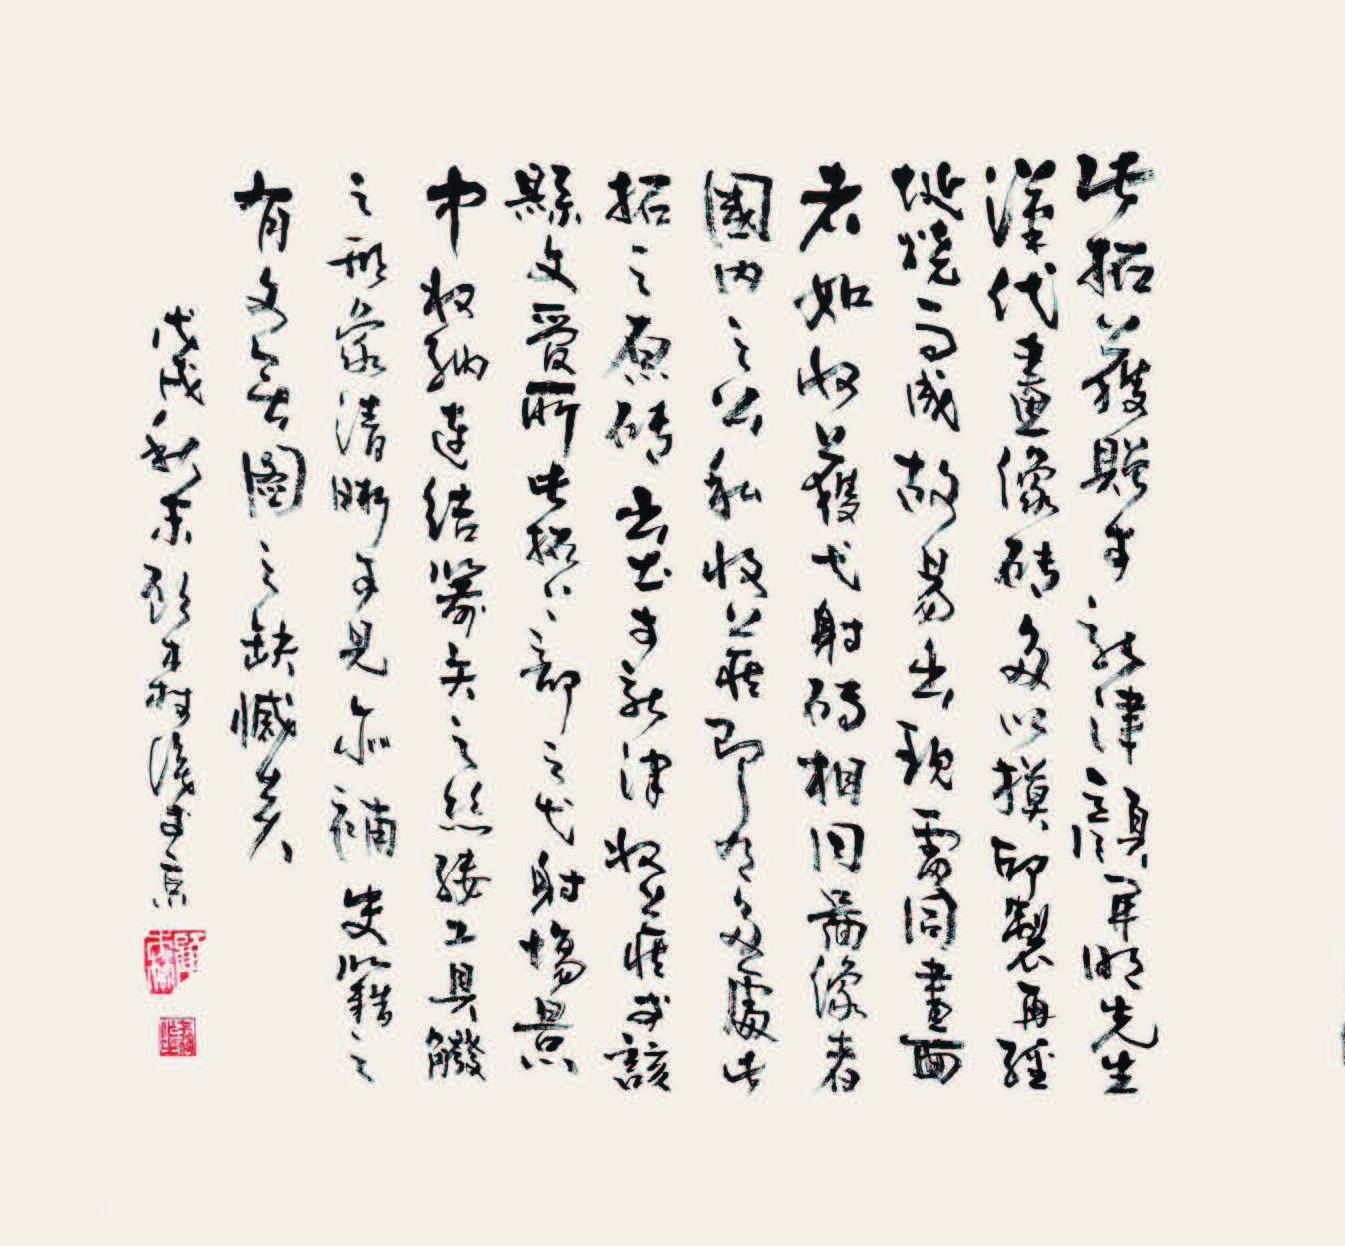 此拓獲贈于新津顏明先生
漢代畫像磚多以摸印製再經
埏燒而成故易出現雷同畫面
者如收獲弋射磚相同圖像者
國內之公私收藏即有多處此
拓之原磚出土于新津收藏于該
縣文管所此拓下部之弋射場景
中收納連結矢之絲縷工具
之形象清晰可見亦補史籍之
有文無圖之缺憾矣
戊戌秋末顧森識于京